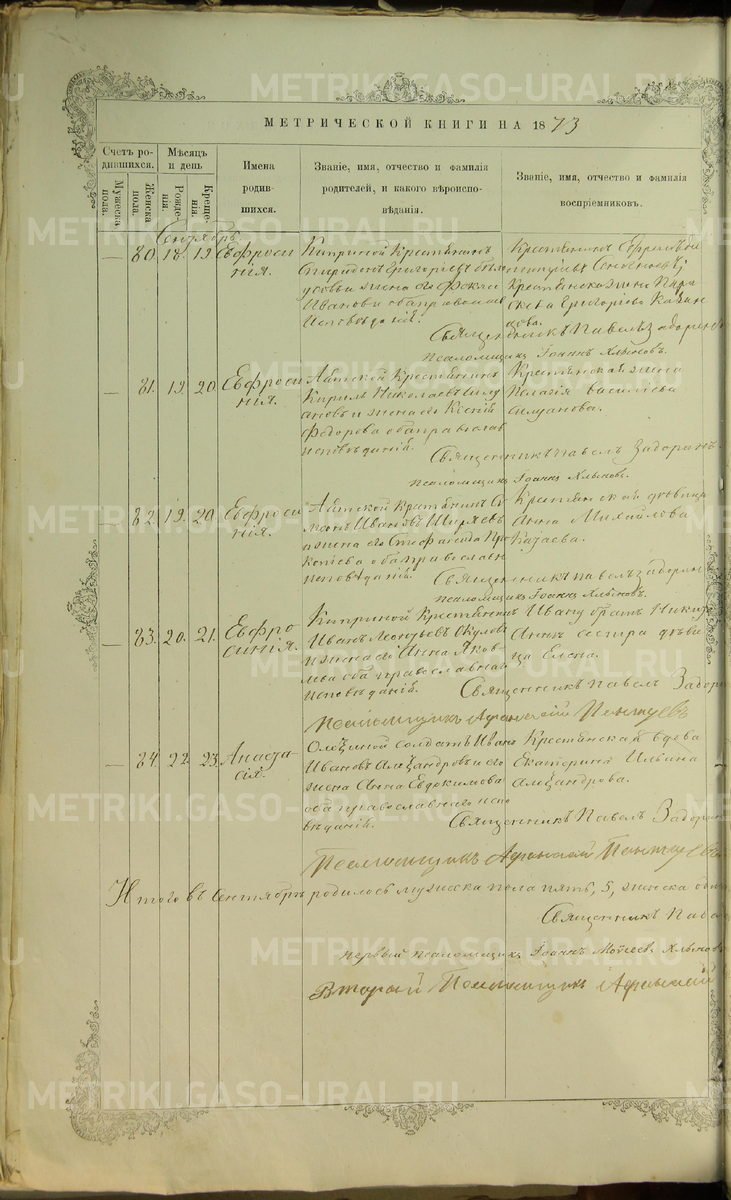 METRIKI.GASO-URAL.RU
МЕТРИЧЕСКОЙ КНИГИ НА 1873
Счетъ ро-
дившихся.
Мужеска
пола.
Женска
пола.
Мѣсяцъ
и день
Рожде-
нія.
Креще-
нія.
Имена
родив-
шихся.
Званіе, имя, отчество и фамилія
родителей, и какого вѣроиспо-
вѣданія.
Званіе, имя, отчество и фамилія
воспріемниковъ.
Сентябрь
— 80. 18. 19. Евфроси
нія.
Крестьянинъ
Спиридонъ Григорьевъ
жена его
Иванова оба православ
исповѣданій.
Крестьянинъ
Крестьянская жена Пара
скева Григорьева
Священникъ Павелъ Задорин
Псаломщикъ Іоаннъ Хлыновъ.
— 81. 19. 20. Евфроси
нія.
Крестьянинъ
Кирилъ Николаевъ Силу
ановъ и жена его Ксенія
Федорова оба православ
исповѣданій.
Крестьянская жена
Пелагія Васильева
Силуанова.
Священникъ Павелъ Задорин
Псаломщикъ Іоаннъ Хлыновъ.
— 82. 19. 20. Евфроси
нія.
Крестьянинъ Си
монъ Ивановъ Ширяевъ
и жена его Стефанида Про
копьева оба православн
исповѣданій.
Крестьянской дѣвица
Анна Михайлова
Священникъ Павелъ Задорин
Псаломщикъ Іоаннъ Хлыновъ.
— 83. 20. 21. Евфро
синія.
Крестьянинъ
Иванъ Леонтьевъ Окулов
и жена его Анна Яков
лева оба православнаго
исповѣданій.
Ивану братъ Ники
Аннѣ сестра дѣви
ца Елена.
Священникъ Павелъ Задорин
Псаломщикъ Афанасій
— 84. 22. 23. Анаста
сія.
солдатъ Иванъ
Ивановъ Александровъ и его
жена Анна Евдокимова
оба православнаго испо
вѣданій.
Крестьянская вдова
Екатерина Ильина
Александрова.
Священникъ Павелъ Задорин
Псаломщикъ Афанасій
Итого въ Сентябрѣ родилось мужска пола пять, 5, женска
Священникъ Павел
Первый псаломщикъ Іоаннъ Моисеевъ Хлынов
Второй Псаломщикъ Афанасій